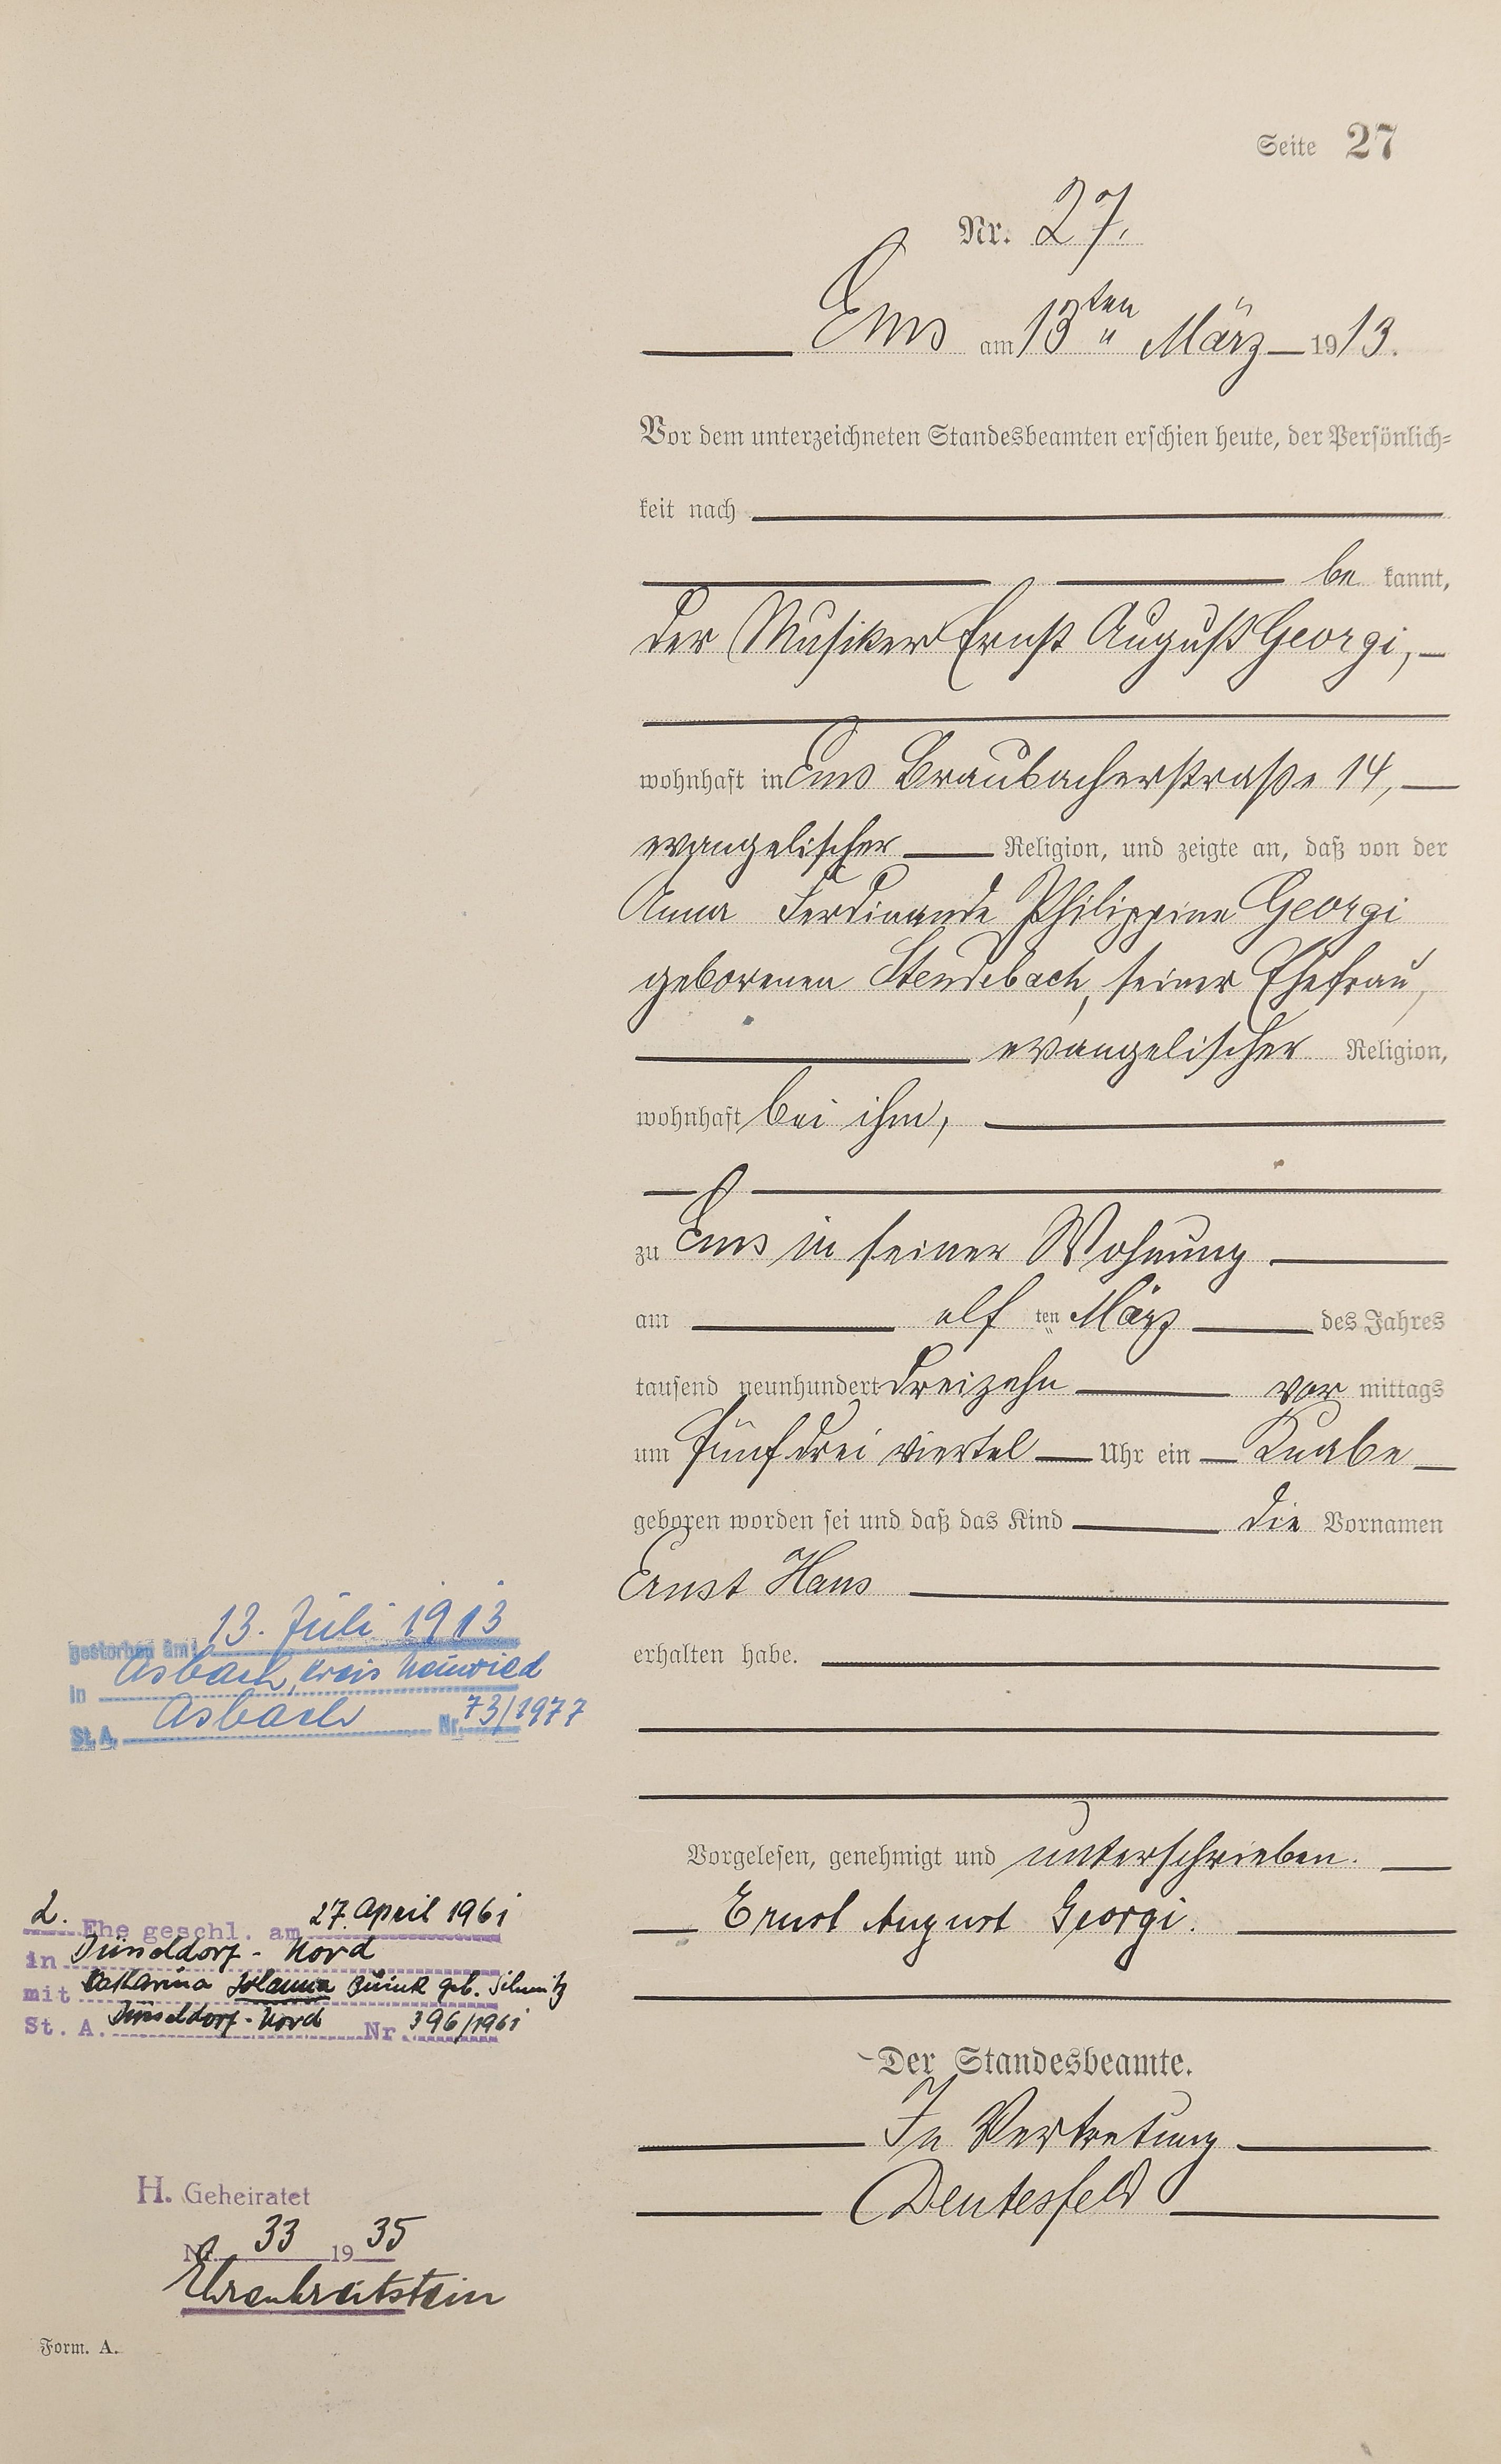 Seite 27
Nr. 27.
Ems am 13ten März 1913.
Vor dem unterzeichneten Standesbeamten erschien heute, der Persönlich-
keit nach
be kannt,
der Musiker Ernst August Georgi,
wohnhaft in Ems Braubacherstraße 14,
evangelischer Religion, und zeigte an, daß von der
Anna Ferdinande Philippine Georgi
geborenen Steudebach, seiner Ehefrau,
evangelischer Religion,
wohnhaft bei ihm,
zu Ems in seiner Wohnung
am elf ten März des Jahres
tausend neunhundert dreizehn vor mittags
um fünf drei viertel Uhr ein Knabe
geboren worden sei und daß das Kind die Vornamen
Ernst Hans
erhalten habe.
Vorgelesen, genehmigt und unterschrieben.
Ernst August Georgi.
Der Standesbeamte.
In Vertretung
Deutesfeld
gestorben am: 13. Juli 1913
in Asbach, Kreis Neuwied
St. A. Asbach Nr. 73/1977
2. Ehe geschl. am 27. April 1961
in Düsseldorf-Nord
mit Katharina geb.
St. A. Düsseldorf-Nord Nr. 396/1961
H. Geheiratet
Nr. 33 19 35
Ehrenbreitstein
Form. A.